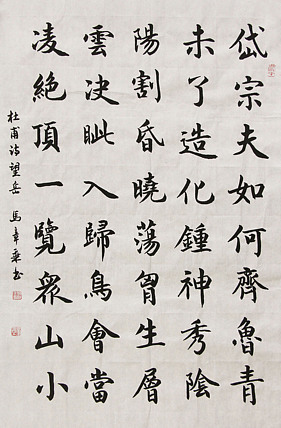 岱宗夫如何齊魯青
未了造化鍾神秀陰
陽割昏曉蕩胷生層
雲決眦入歸鳥會當
凌絕頂一覽衆山小
杜甫诗望岳 馬